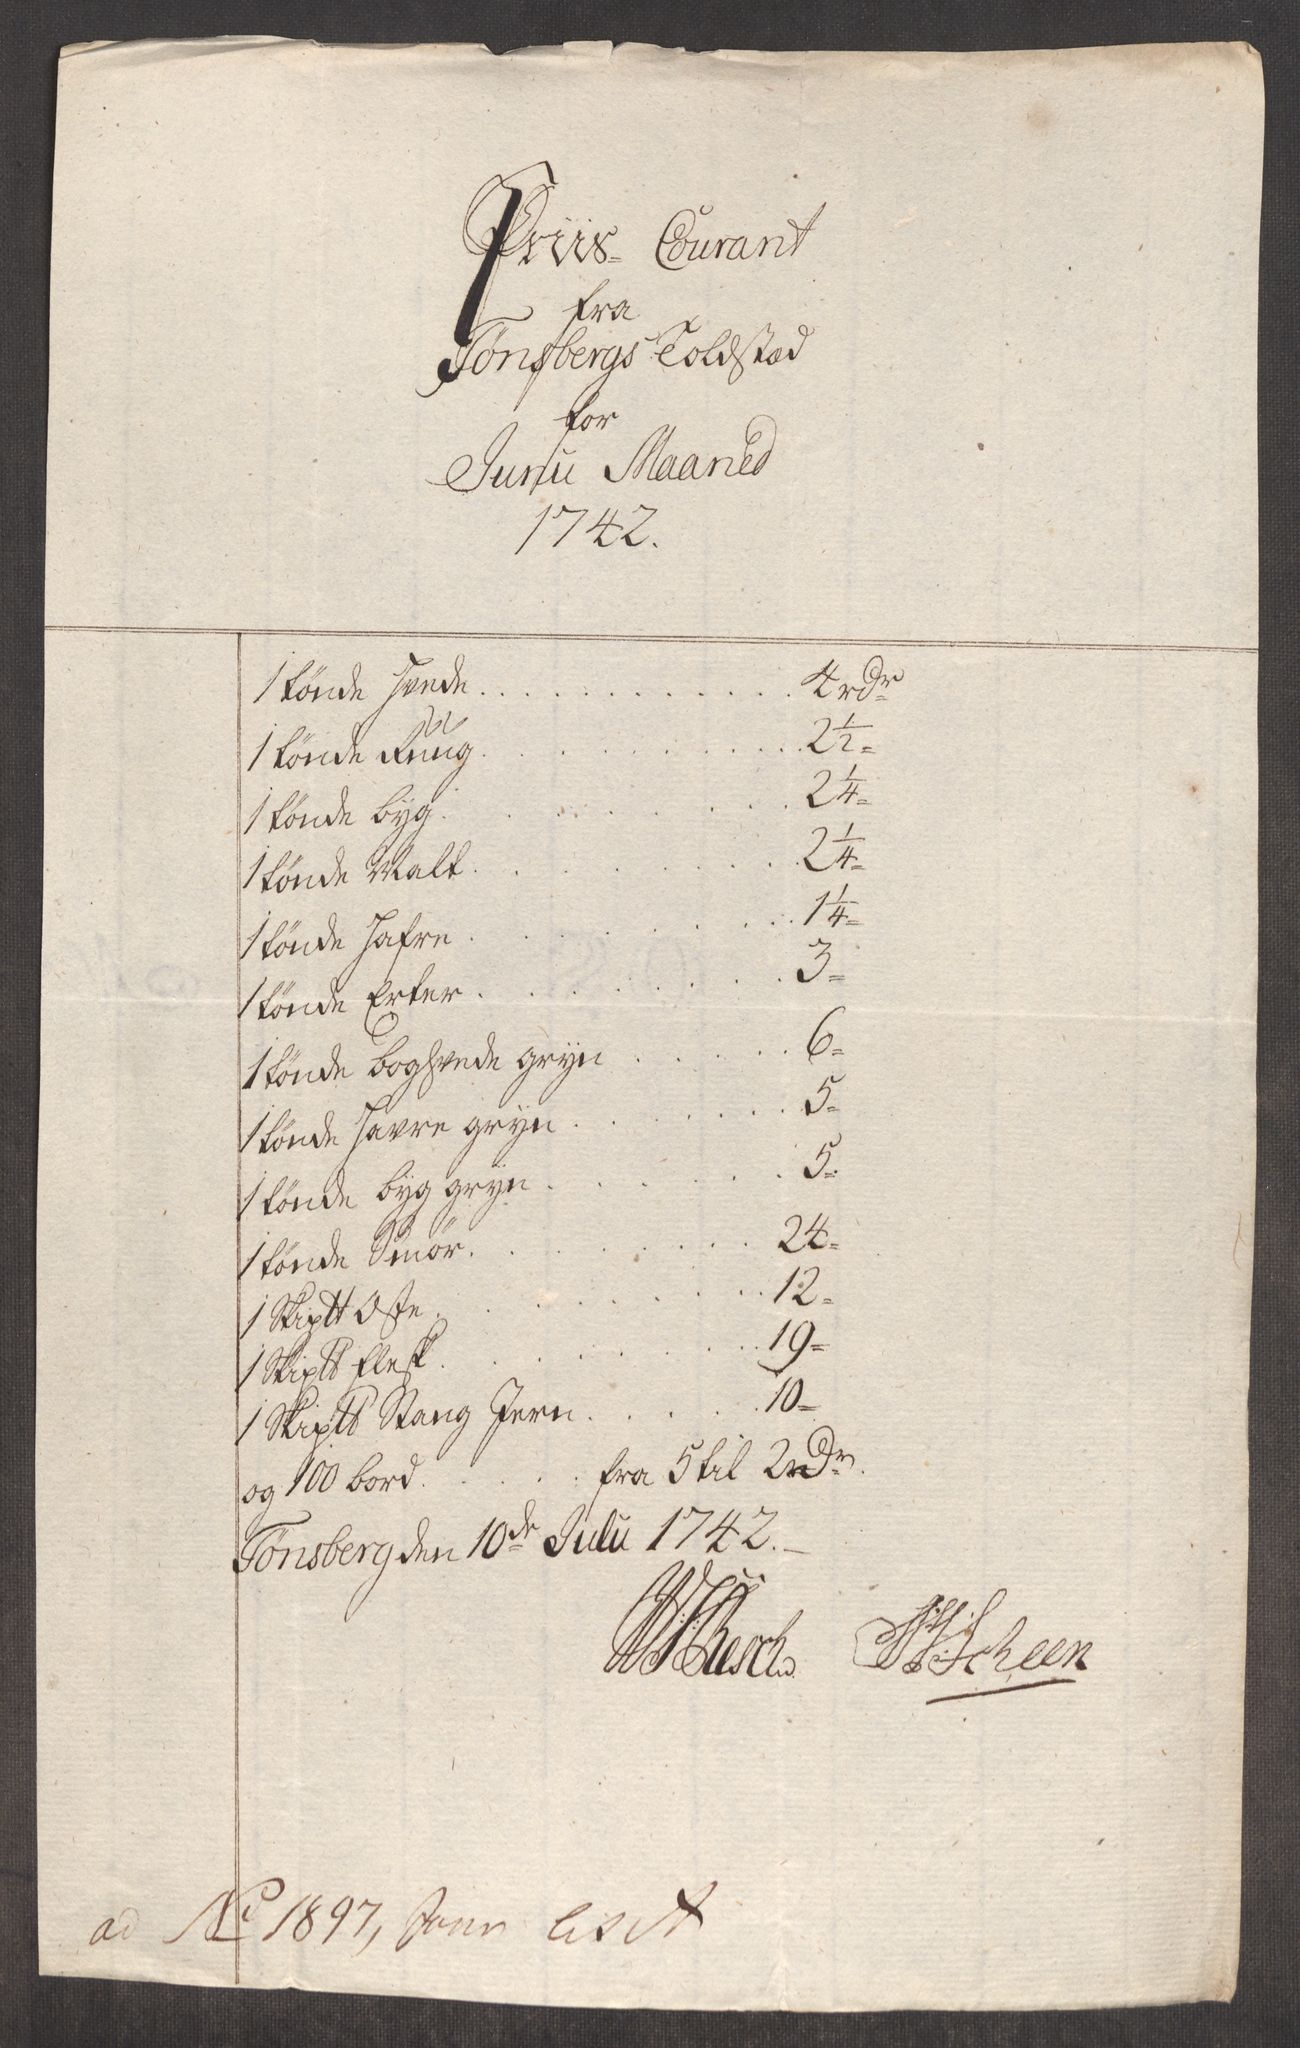 Priis- Courant
fra
Tønsbergs Toldstæd
for
Junii Maaned
1742.
1 tønde Hvede . . . . . . . . . . . . . 4 rdr
1 tønde Rüüg . . . . . . . . . . 2 1/2 =
1 tønde byg . . . . . . . . . 2 1/4 =
1 tønde Malt . . . . . . . . . 2 1/4 =
1 tønde Hafre . . . . . . . . . 1 1/4 =
1 tønde Erter . . . . . . . . . 3 =
1 tønde boghvede gryn . . . . . 6 =
1 tønde Havre gryn . . . . . . . 5 =
1 tønde byg gryn . . . . . . . 5 =
1 tønde Smör . . . . . . . . . 24 =
1 Skiptt Oste . . . . . . . . . 12 =
1 Skiptt flesk . . . . . . . . . 19 =
1 Skiptt Stang Jern . . . . . 10 =
og 100 bord . . . . . fra 5 til 2 rdr.
Tønsberg den 10de Julii 1742. —
Resch Scheen
ad No 1897,